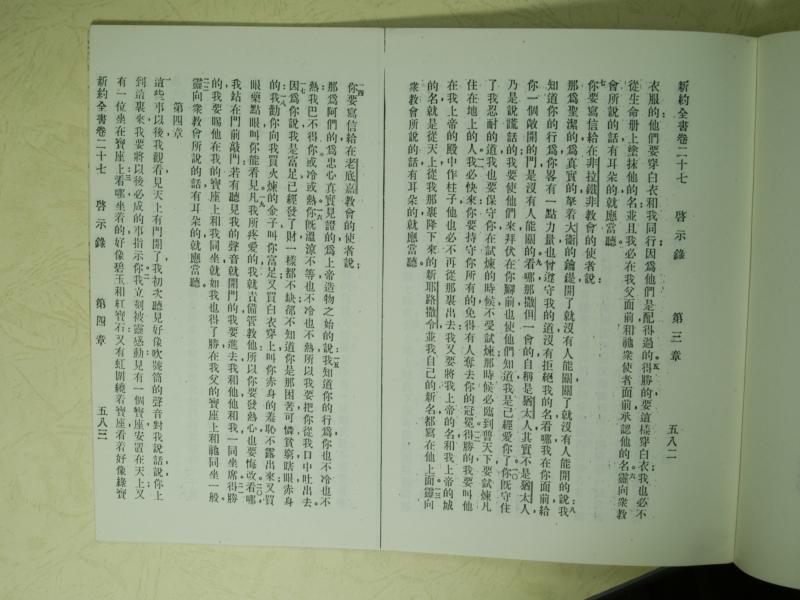 新約全書卷二十七　啓示錄　第三章　五八二
衣服的他們要穿白衣和我同行因爲他們是配得過的得勝的要這樣穿白衣我也必不
從生命册上塗抹他的名並且我必在我父面前和祂衆使者面前承認他的名靈向衆敎
會所說的話有耳朵的就應當聽
你要寫信給在非拉鐵非敎會的使者說
那爲聖潔的爲眞實的拏着大衞的鑰鍉開了就沒有人能關關了就沒有人能開的說我
知道你的行爲你畧有一點力量也曾遵守我的道沒有拒絕我的名看哪我在你面前給
你一個敞開的門是沒有人能關的看哪那撒但一會的自稱是猶太人其實不是猶太人
乃是說謊話的我要使他們來拜伏在你腳前也使他們知道我是已經愛你了你既守住
了我忍耐的道我也要保守你在試煉的時候不受試煉那時候必臨到普天下要試煉凡
住在地上的人我必快來你要持守你所有的免得有人奪去你的冠冕得勝的我要叫他
在我上帝的殿中作柱子他也必不再從那裏出去我又要將我上帝的名和我上帝的城
的名就是從天上從我那裏降下來的新耶路撒冷並我自己的新名都寫在他上面靈向
衆敎會所說的話有耳朵的就應當聽
你要寫信給在老底嘉敎會的使者說
那爲阿們的爲忠心眞實見證的爲上帝造物之始的說我知道你的行爲你也不冷也不
熱我巴不得你或冷或熱你既溫涼不等也不冷也不熱所以我要把你從我口中吐出去
因爲你說我是富足已經發了財一樣都不缺卻不知道你是那困苦可憐貧窮瞎眼赤身
的我勸你向我買火煉的金子叫你富足又買白衣穿上叫你赤身的羞恥不露出來又買
眼藥點眼叫你能看見凡我所疼愛的我就責備管敎他所以你要發熱心也要悔改看哪
我站在門前敲門若有聽見我的聲音就開門的我要進去我和他他和我一同坐席得勝
的我要賜他在我的寶座上和我同坐就如我也得了勝在我父的寶座上和祂同坐一般
靈向衆敎會所說的話有耳朵的就應當聽
第四章
這些事以後我觀看見天上有門開了我初次聽見好像吹號筒的聲音對我說話說你上
到這裏來我要將以後必成的事指示你我立刻被靈感動見有一個寶座安置在天上又
有一位坐在寶座上看哪坐着的好像碧玉和紅寶石又有虹圍繞着寶座看着好像綠寶
新約全書卷二十七　啓示錄　第四章　五八三